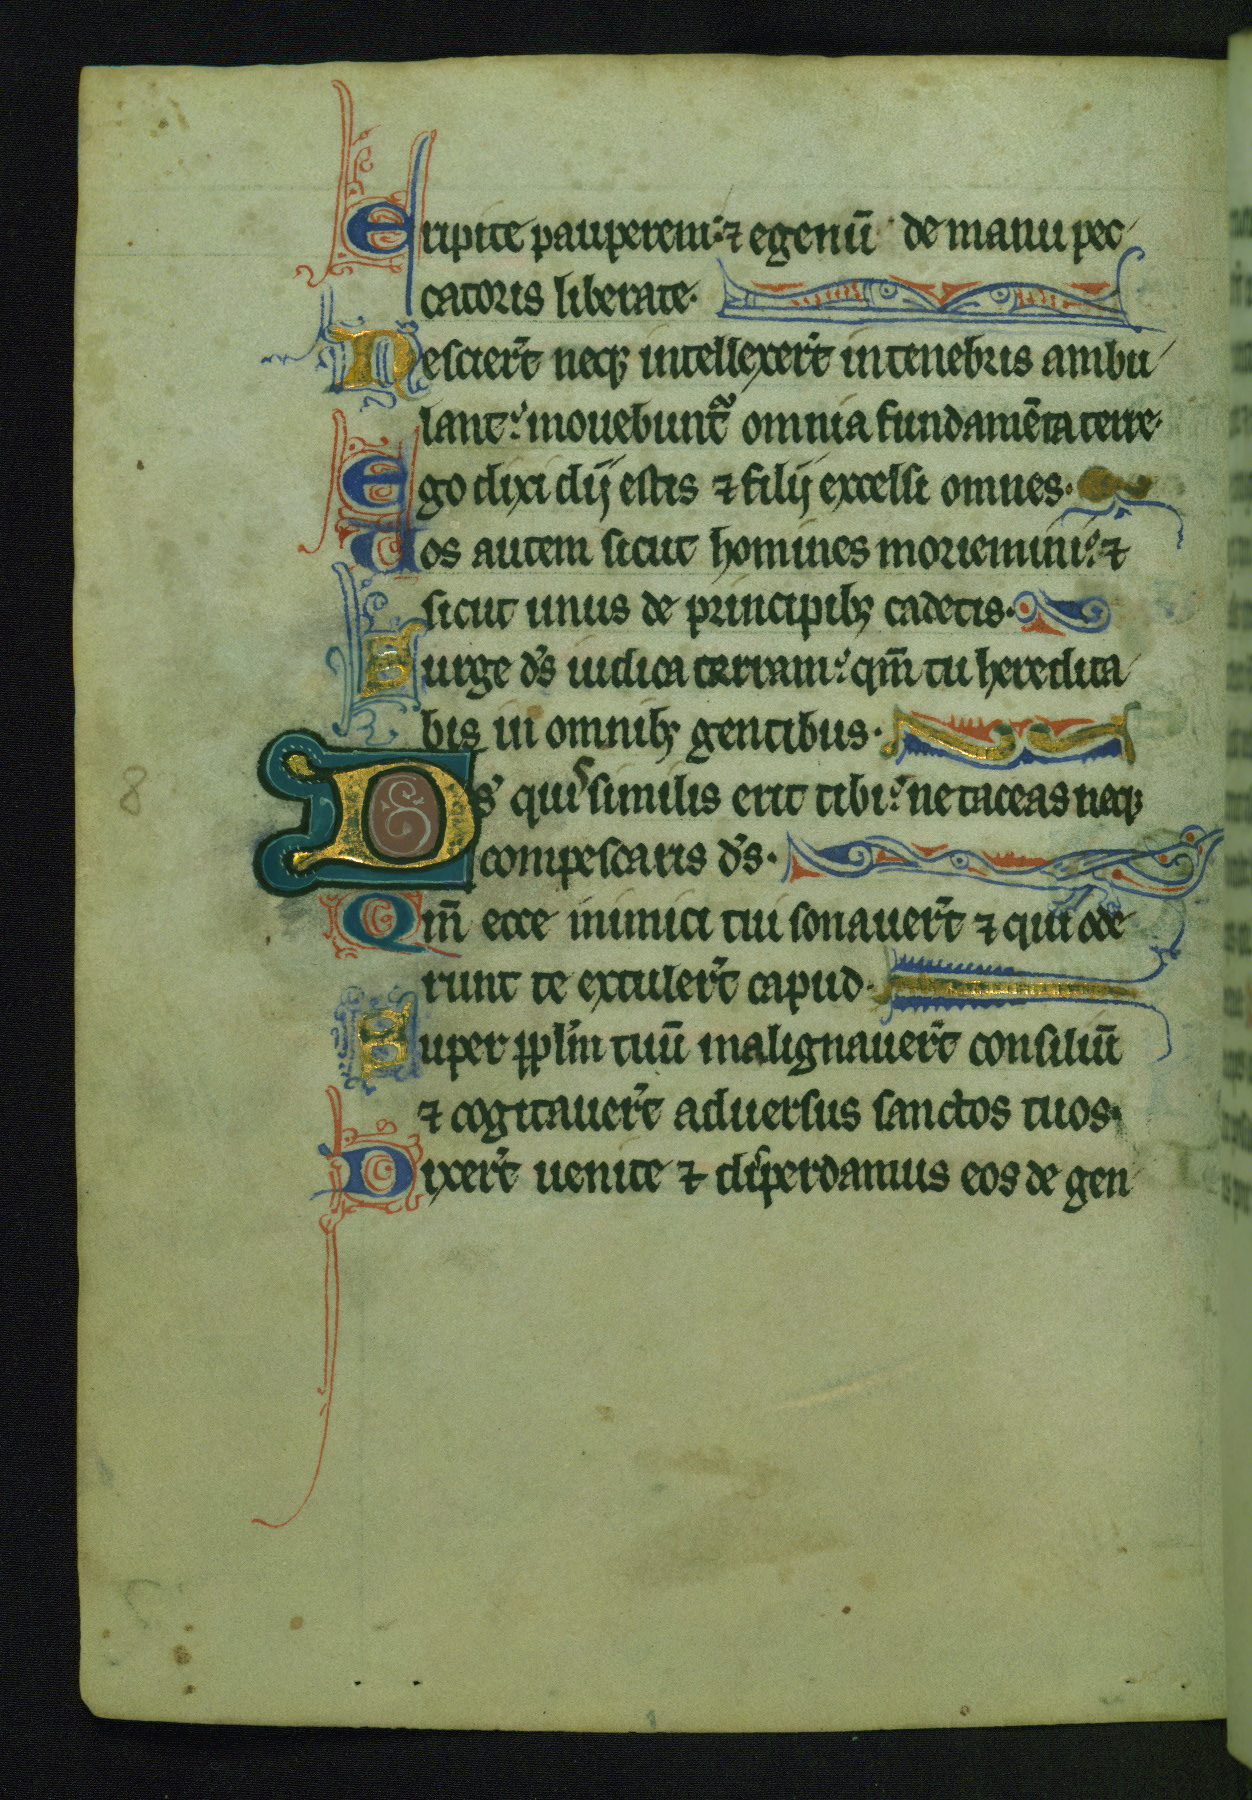 Eripite pauperem: ⁊ egenū de manu pec
catoris liberate.
Nescier̄t neqꝫ intellexer̄t in tenebris ambu
lant: mouebunt᷑ omnia fundamēta terre.
Ego dixi dij estis ⁊ filij excelsi omnes.
Uos autem sicut homines moriemini: ⁊
sicut unus de principibꝫ cadetis.
Surge ds̄ iudica terram: qm̄ tu heredita
bis in omnibꝫ gentibus.
Ds̄ quis similis erit tibi: ne taceas neqꝫ
compescaris ds̄.
Qm̄ ecce inimici tui sonauer̄t ⁊ qui ode
runt te extuler̄t capud.
Super ppl̄m tuū malignauer̄t consiliū
⁊ cogitauer̄t aduersus sanctos tuos.
Dixer̄t uenite ⁊ disperdamus eos de gen
8